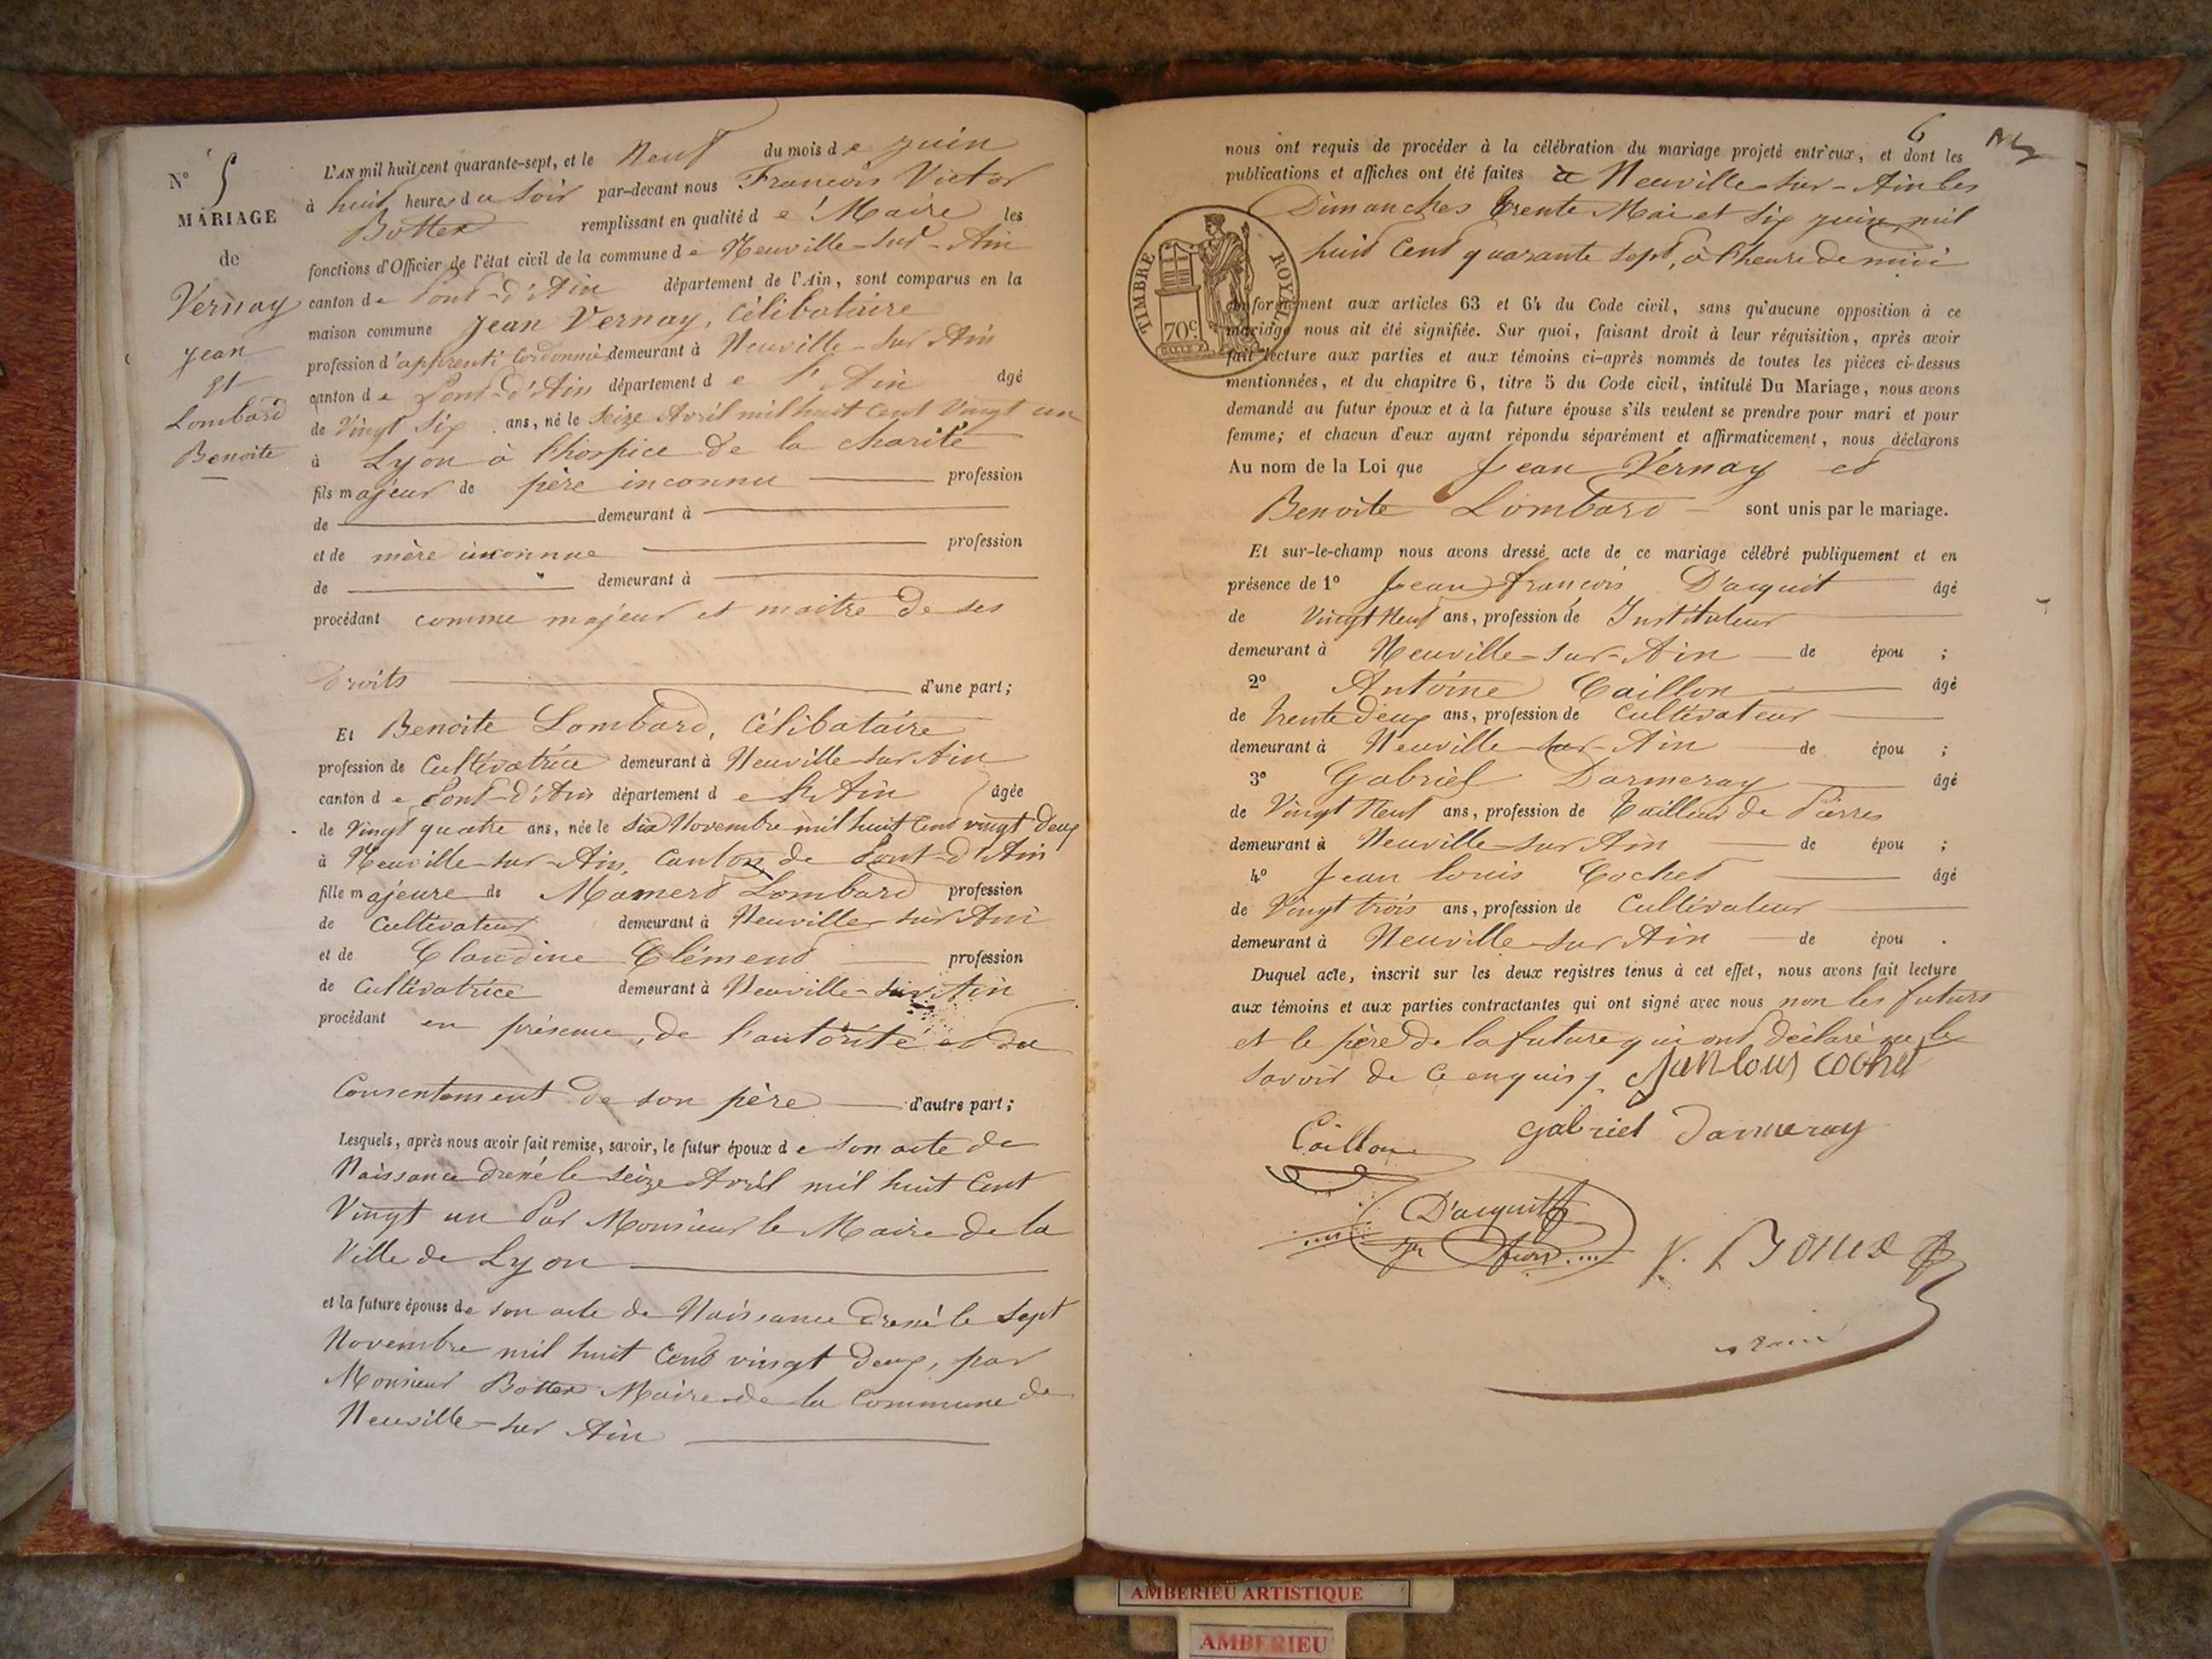 N° 5
MARIAGE
de
Vernay
Jean
Et
Lombard
Benoite
L'AN mil huit cent quarante-sept, et le Neuf du mois de juin
à huit heures du Soir par-devant nous François Victor
Bottex remplissant en qualité de Maire les
fonctions d'Officier de l'état civil de la commune de Neuville-sur-Ain
canton de Pont-d'Ain département de l'Ain, sont comparus en la
maison commune Jean Vernay, Célibataire
profession d'apprenti Cordonnier demeurant à Neuville-sur Ain
canton de Pont-d'Ain département de l'Ain âgé
de Vingt Six ans, né le Seize Avril mil huit Cent Vingt un
à Lyon à l'hospice de la charité
fils majeur de père inconnu profession
de demeurant à
et de mère inconnue profession
de demeurant à
procédant comme majeur et maitre de ses
Droits d'une part;
Et Benoite Lombard, Célibataire
profession de Cultivatrice demeurant à Neuville sur Ain
canton de Pont-d'Ain département de l'Ain âgée
de Vingt quatre ans, née le Six Novembre mil huit Cent vingt deux
à Neuville-sur-Ain, Canton de Pont-d'Ain
fille majeure de Mamert Lombard profession
de Cultivateur demeurant à Neuville sur Ain
et de Claudine Clément profession
de Cultivatrice demeurant à Neuville-sur Ain
procédant en présence, de l'autorité et du
Consentement de son père d'autre part;
Lesquels, après nous avoir fait remise, savoir, le futur époux de son acte de
Naissance dressé le seize Avril mil huit Cent
Vingt un Par Monsieur le Maire de la
Ville de Lyon
et la future épouse de son acte de Naissance dressé le Sept
Novembre mil huit Cent vingt deux, par
Monsieur Bottex Maire de la Commune de
Neuville-sur Ain
6
nous ont requis de procéder à la célébration du mariage projeté entr'eux, et dont les
publications et affiches ont été faites à Neuville-sur-Ain les
Dimanches trente Mai et Six juin mil
huit Cent quarante sept, à l'heure de midi
TIMBRE ROYAL
70c.
conformément aux articles 63 et 64 du Code civil, sans qu'aucune opposition à ce
mariage nous ait été signifiée. Sur quoi, faisant droit à leur réquisition, après avoir
fait lecture aux parties et aux témoins ci-après nommés de toutes les pièces ci-dessus
mentionnées, et du chapitre 6, titre 5 du Code civil, intitulé Du Mariage, nous avons
demandé au futur époux et à la future épouse s'ils veulent se prendre pour mari et pour
femme; et chacun d'eux ayant répondu séparément et affirmativement, nous déclarons
Au nom de la Loi que Jean Vernay et
Benoite Lombard sont unis par le mariage.
Et sur-le-champ nous avons dressé acte de ce mariage célébré publiquement et en
présence de 1° Jean François D'acquit âgé
de Vingt Neuf ans, profession de Instituteur
demeurant à Neuville-sur-Ain de épou ;
2° Antoine Caillon âgé
de trente Deux ans, profession de Cultivateur
demeurant à Neuville-sur-Ain de épou ;
3° Gabriel Darmeray âgé
de Vingt Neuf ans, profession de Tailleur de Pierres
demeurant à Neuville-sur Ain de épou ;
4° Jean Louis Cochet âgé
de Vingt trois ans, profession de Cultivateur
demeurant à Neuville-sur Ain de épou .
Duquel acte, inscrit sur les deux registres tenus à cet effet, nous avons fait lecture
aux témoins et aux parties contractantes qui ont signé avec nous non les futurs
et le père de la future qui ont déclaré ne le
savoir de ce enquis
Caillon gabriel Darmeray
D'acquit
V. Bottex
AMBERIEU ARTISTIQUE
AMBERIEU